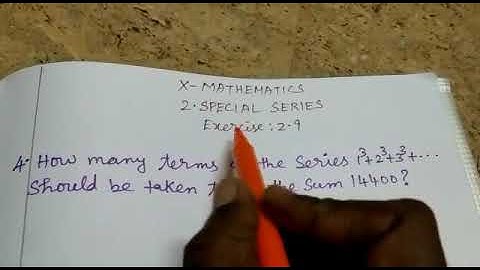 X- MATHEMATICS
2. SPECIAL SERIES
Exercise: 2.9
4. How many terms the series 1³+2³+3³+...
Should be taken the Sum 14400?